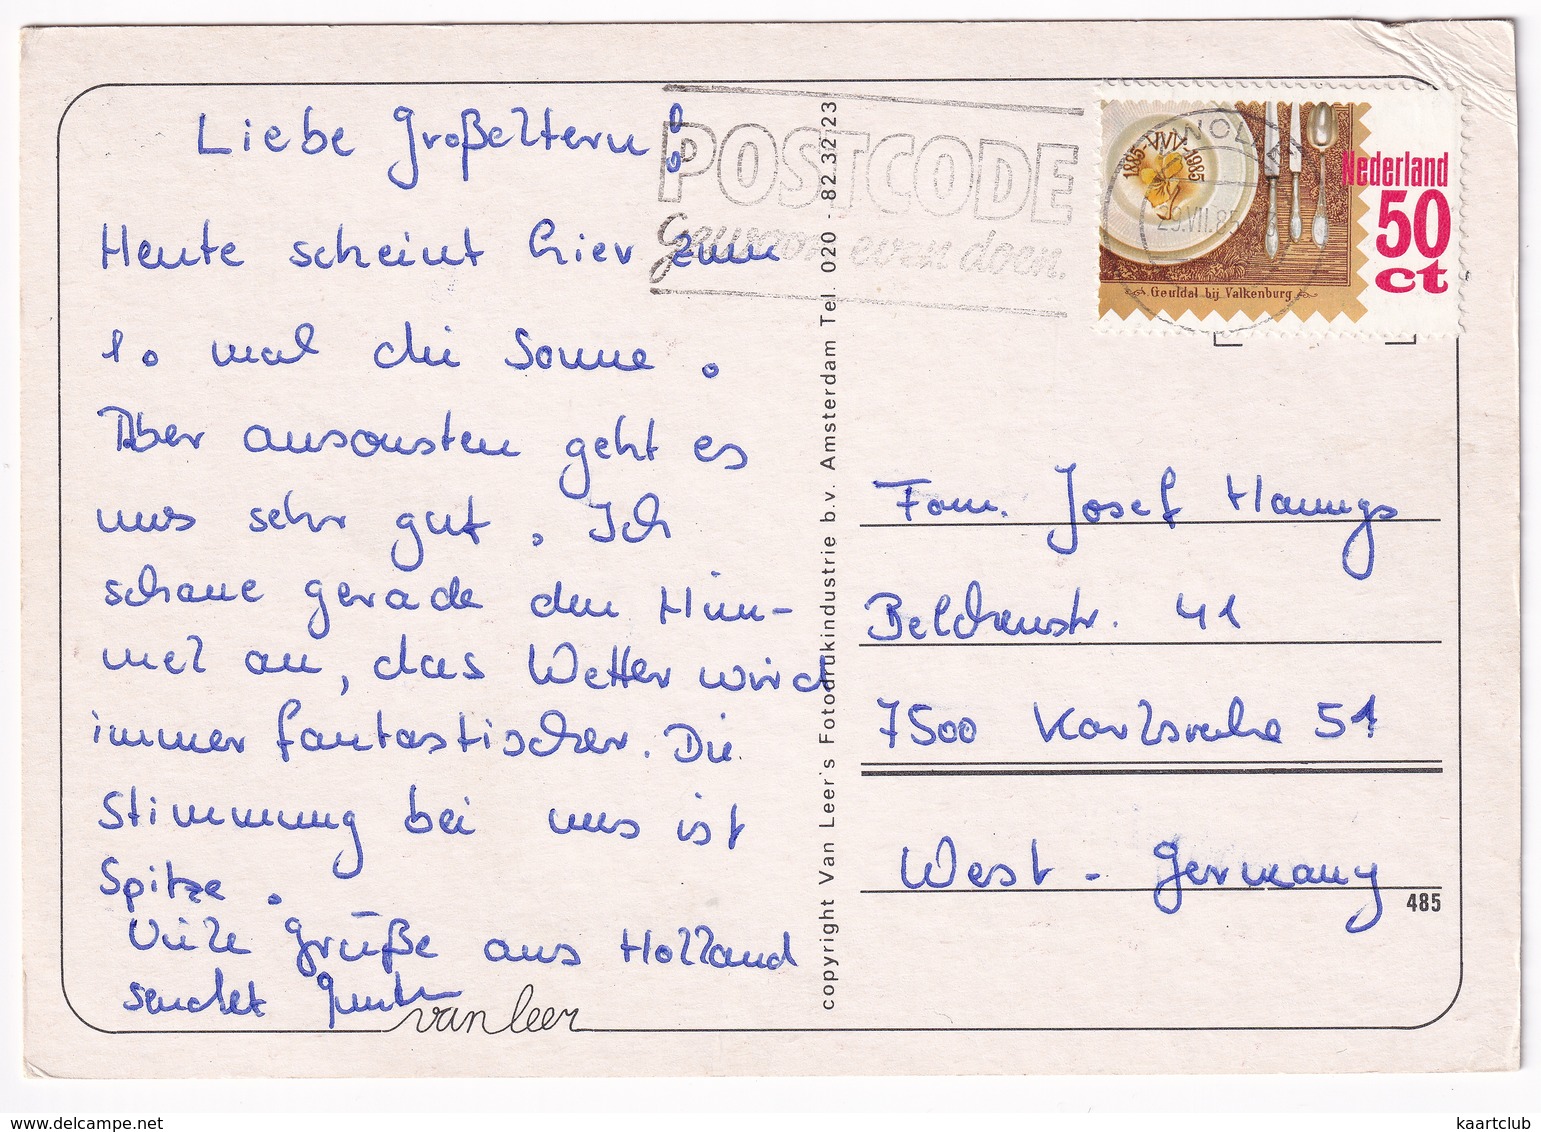 Liebe Großeltern!
Heute scheint hier zum
1. mal die Sonne.
Aber ansonsten geht es
uns sehr gut. Ich
schaue gerade den Him-
mel an, das Wetter wird
immer fantastischer. Die
Stimmung bei uns ist
Spitze.
Viele Grüße aus Holland
sendet
van leer
copyright Van Leer's Fotodrukindustrie b.v. Amsterdam Tel. 020 - 82.32.23
POSTCODE
Gewoon even doen.
1885-VVV-1985
Nederland
50
ct
Geuldal bij Valkenburg
29.VII.85
Fam. Josef
Belchenstr. 41
7500 Karlsruhe 51
West-Germany
485
www.delcampe.net
kaartclub